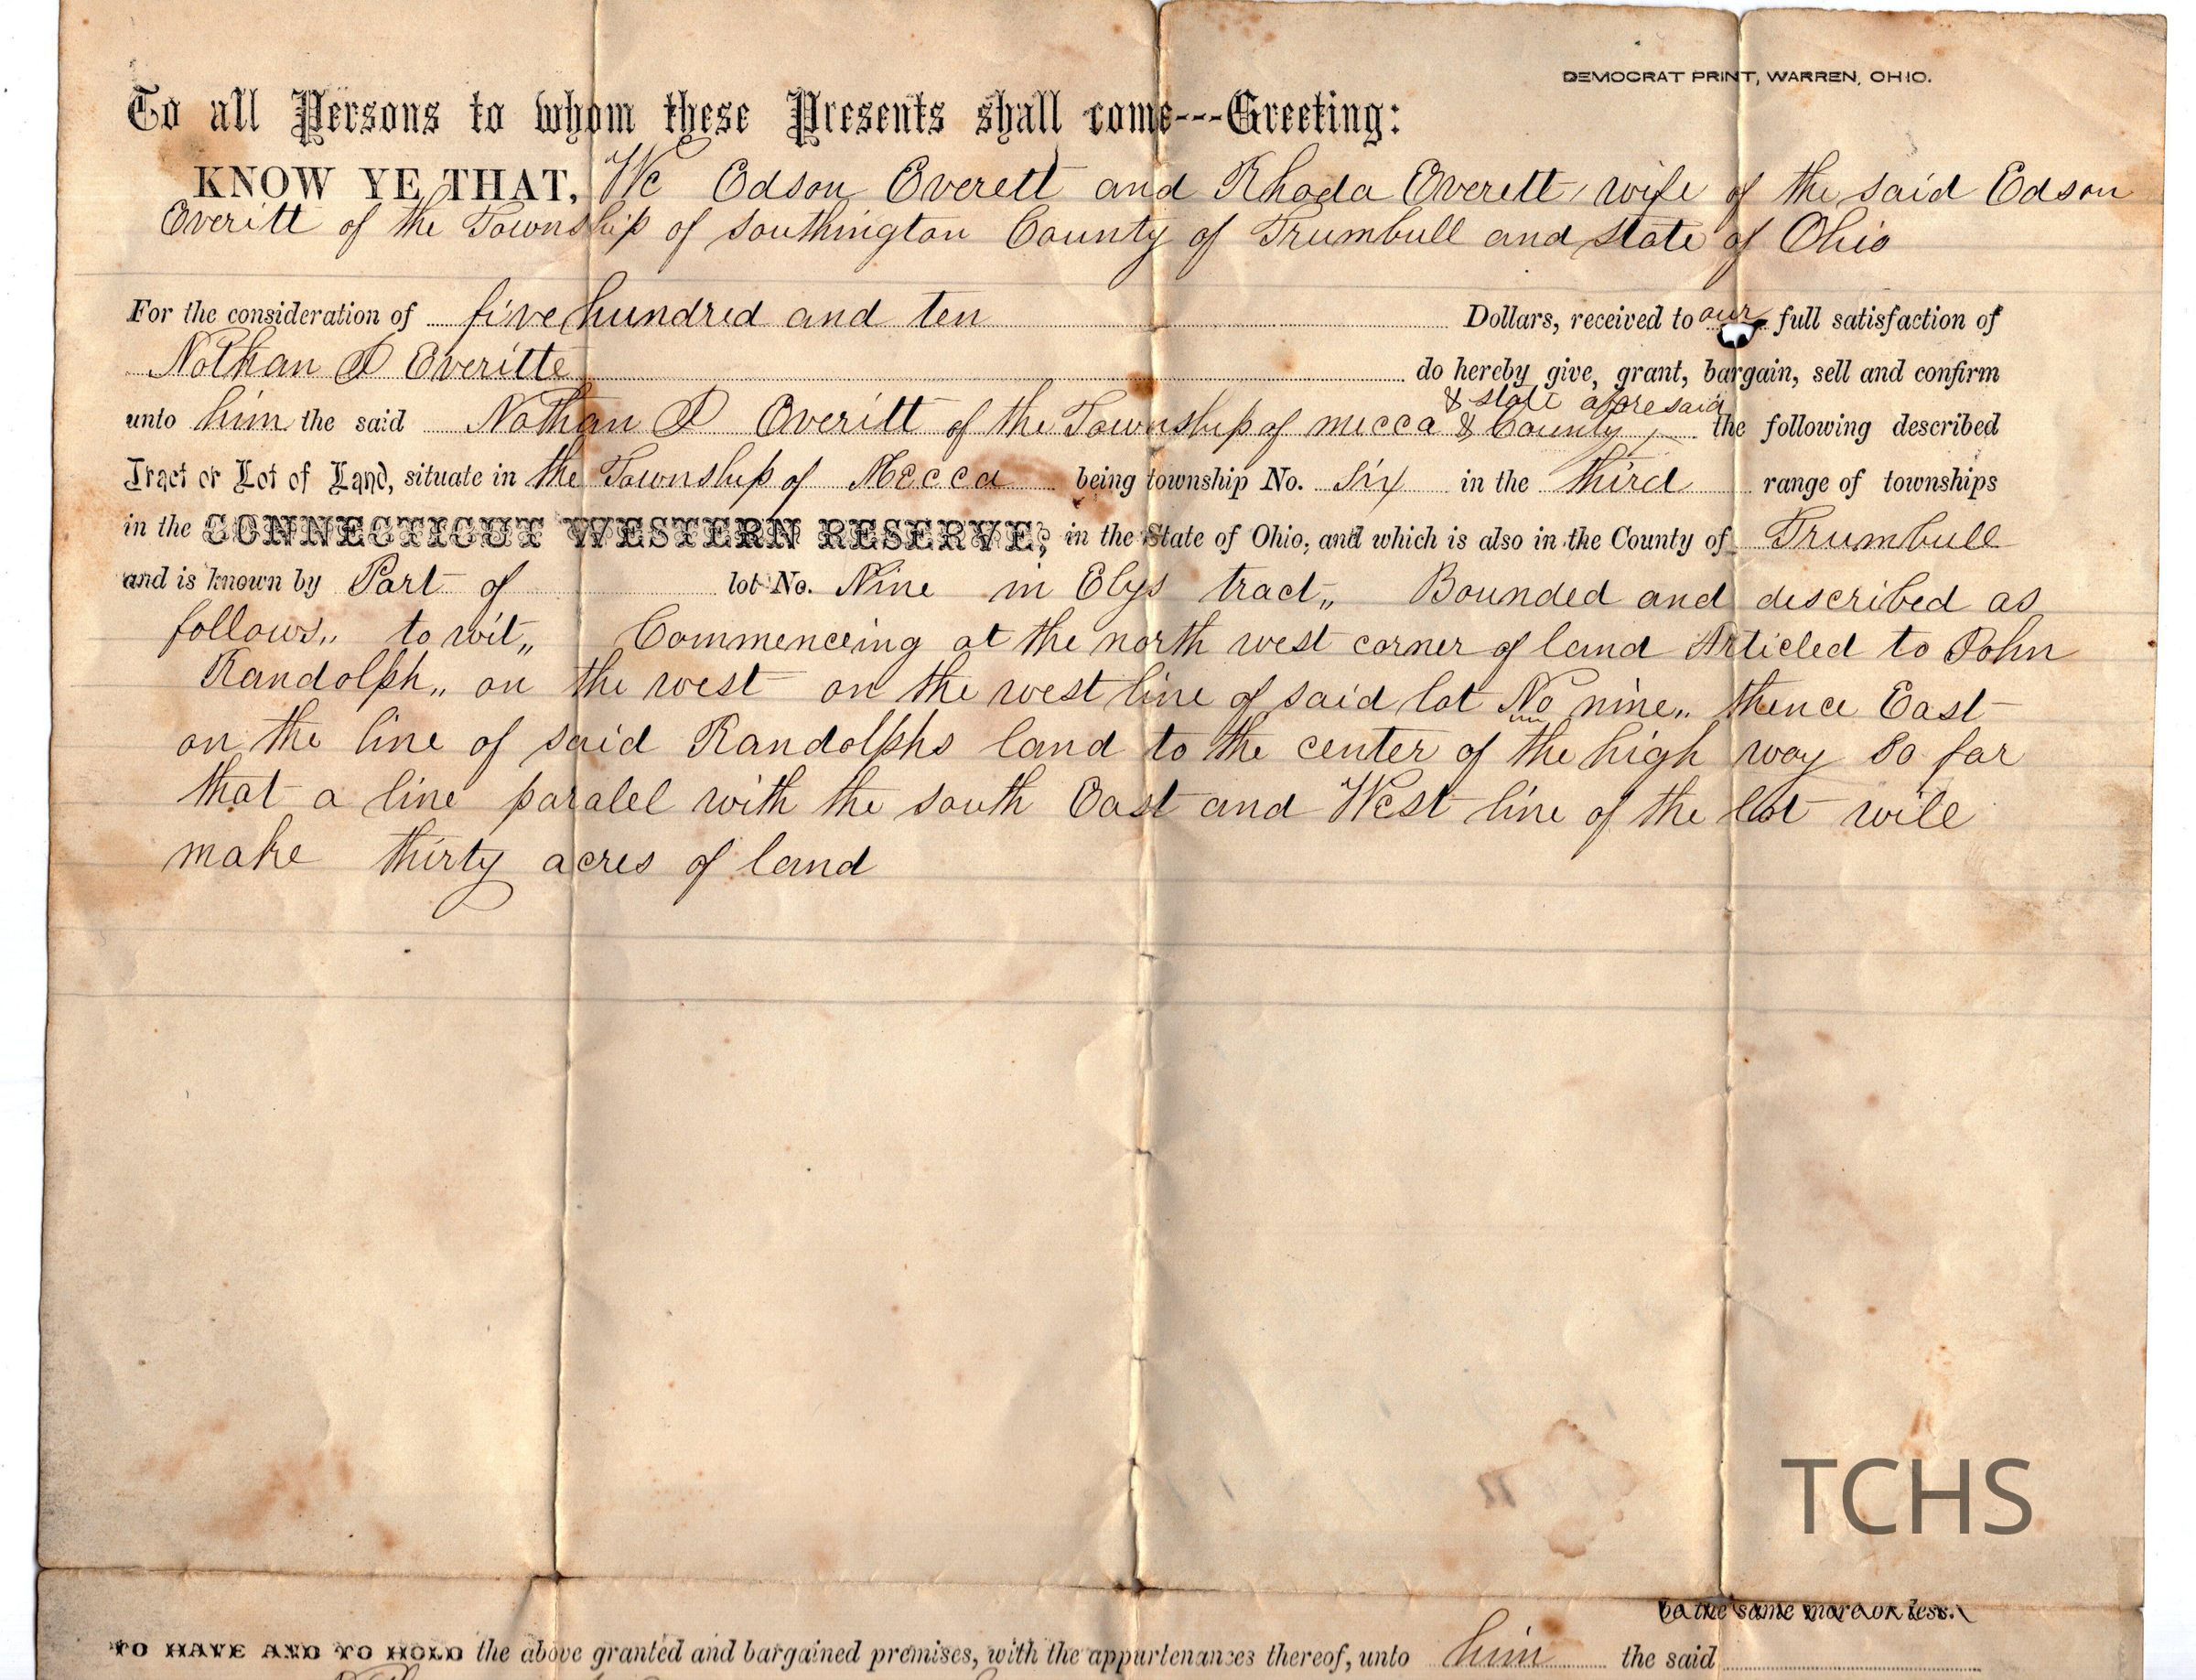 DEMOCRAT PRINT, WARREN, OHIO.
To all Persons to whom these Presents shall come---Greeting:
KNOW YE THAT, We Edson Everett and Rhoda Everett, wife of the said Edson
Everitt of the Township of Southington County of Trumbull and State of Ohio
For the consideration of five hundred and ten Dollars, received to our full satisfaction of
Nathan P Everitte do hereby give, grant, bargain, sell and confirm
& State aforesaid
unto him the said Nathan P Everitt of the Township of mecca & County, the following described
Tract or Lot of Land, situate in the Township of Mecca being township No. Six in the third range of townships
in the CONNECTICUT WESTERN RESERVE, in the State of Ohio, and which is also in the County of Trumbull
and is known by Part of lot No. Nine in Elys tract,, Bounded and described as
follows,, to wit,, Commenceing at the north west corner of land Articled to John
Randolph,, on the west on the west line of said lot No nine,, thence East
on the line of said Randolphs land to the center of the high way so far
that a line paralel with the south East and West line of the lot will
make thirty acres of land
TCHS
be the same more or less.
TO HAVE AND TO HOLD the above granted and bargained premises, with the appurtenances thereof, unto him the said